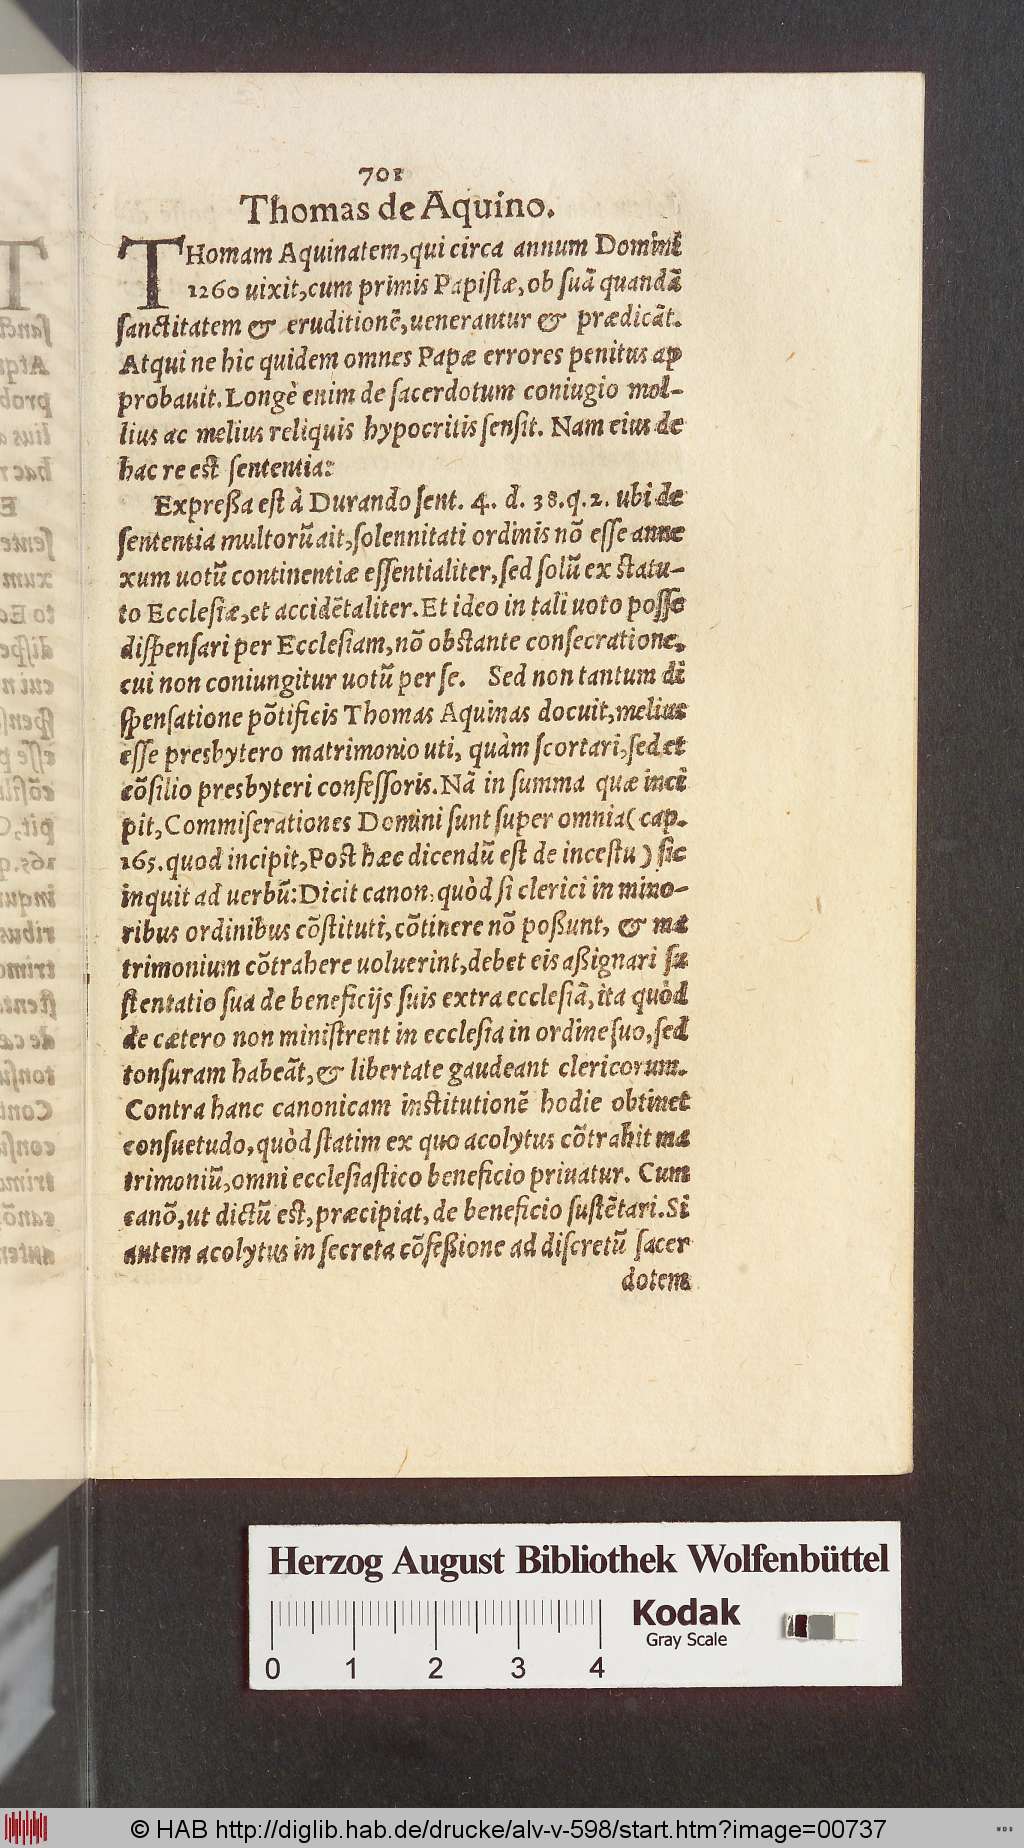 701
Thomas de Aquino.
THomam Aquinatem, qui circa annum Domini
1260 uixit, cum primis Papistæ, ob suã quandã
sanctitatem & eruditionẽ, uenerantur & prædicãt.
Atqui ne hic quidem omnes Papæ errores penitus ap
probauit. Longè enim de sacerdotum coniugio mol-
lius ac melius reliquis hypocritis sensit. Nam eius de
hac re est sententia:
Expreßa est à Durando sent. 4. d. 38. q. 2. ubi de
sententia multorũ ait, solennitati ordinis nõ esse anne
xum uotũ continentiæ essentialiter, sed solũ ex statu-
to Ecclesiæ, et accidẽtaliter. Et ideo in tali uoto posse
dispensari per Ecclesiam, nõ obstante consecratione,
cui non coniungitur uotũ per se. Sed non tantum di
spensatione põtificis Thomas Aquinas docuit, melius
esse presbytero matrimonio uti, quàm scortari, sed et
cõsilio presbyteri confessoris. Nã in summa quæ inci
pit, Commiserationes Domini sunt super omnia (cap.
165. quod incipit, Post hæc dicendũ est de incestu) sic
inquit ad uerbũ: Dicit canon, quòd si clerici in mino-
ribus ordinibus cõstituti, cõtinere nõ poßunt, & ma
trimonium cõtrahere uoluerint, debet eis aßignari su
stentatio sua de beneficijs suis extra ecclesiã, ita quòd
de cætero non ministrent in ecclesia in ordine suo, sed
tonsuram habeãt, & libertate gaudeant clericorum.
Contra hanc canonicam institutionẽ hodie obtinet
consuetudo, quòd statim ex quo acolytus cõtrahit ma
trimoniũ, omni ecclesiastico beneficio priuatur. Cum
canõ, ut dictũ est, præcipiat, de beneficio sustẽtari. Si
autem acolytus in secreta cõfeßione ad discretũ sacer
dotem
Herzog August Bibliothek Wolfenbüttel
Kodak
Gray Scale
0 1 2 3 4
© HAB http://diglib.hab.de/drucke/alv-v-598/start.htm?image=00737